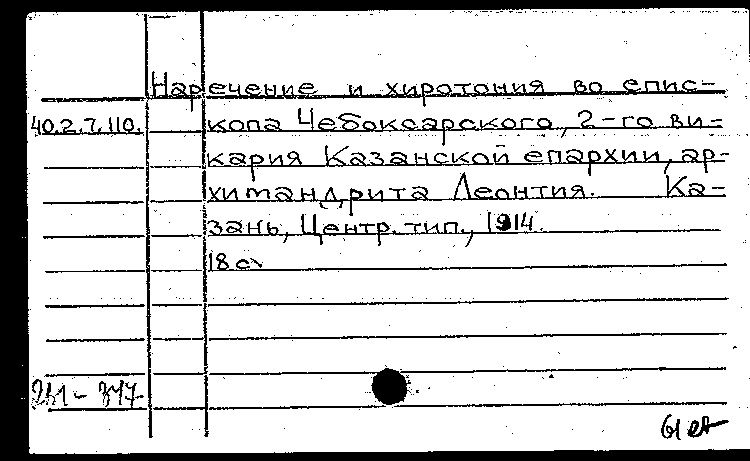 Наречение и хиротония во епис-
40.2.7.110. копа Чебоксарского, 2-го ви-
кария Казанской епархии, ар-
химандрита Леонтия. Ка-
зань, Центр. тип., 1914.
18 с.